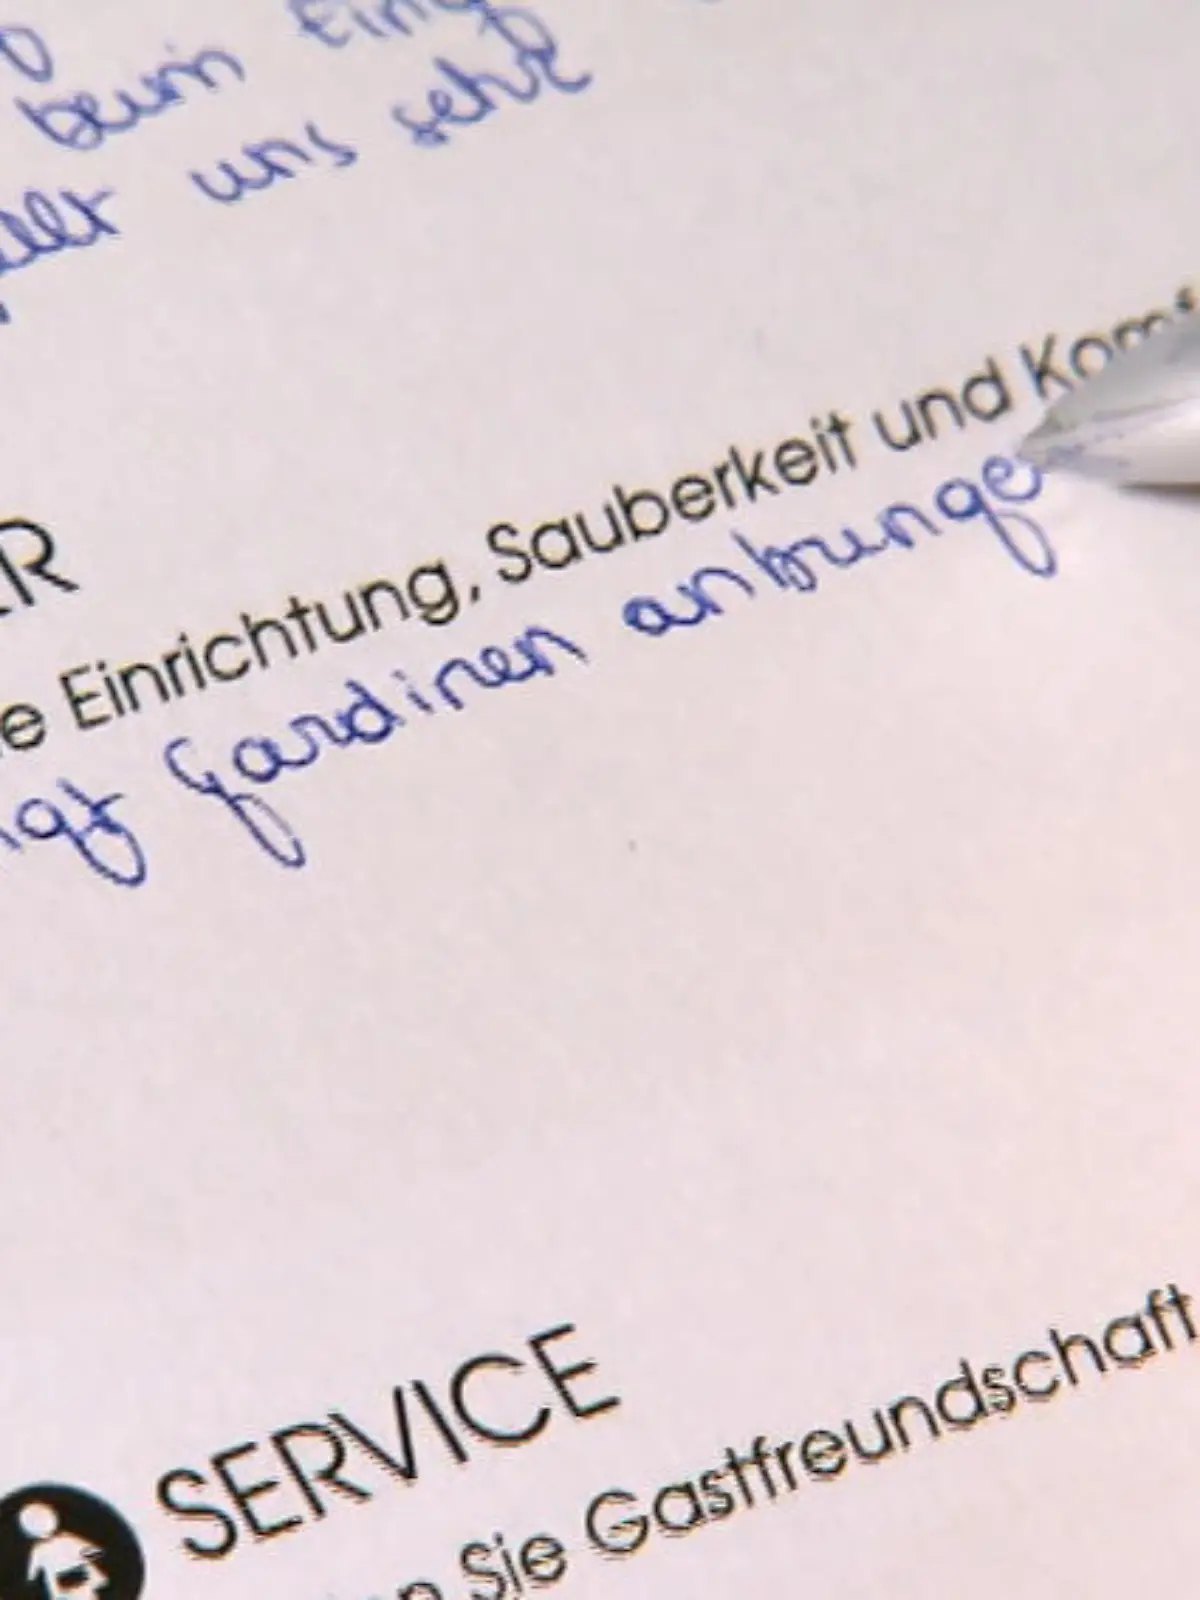 beim Eing
uns sehr
ER
e Einrichtung, Sauberkeit und Komf
gardinen anbringe
SERVICE
Sie Gastfreundschaft